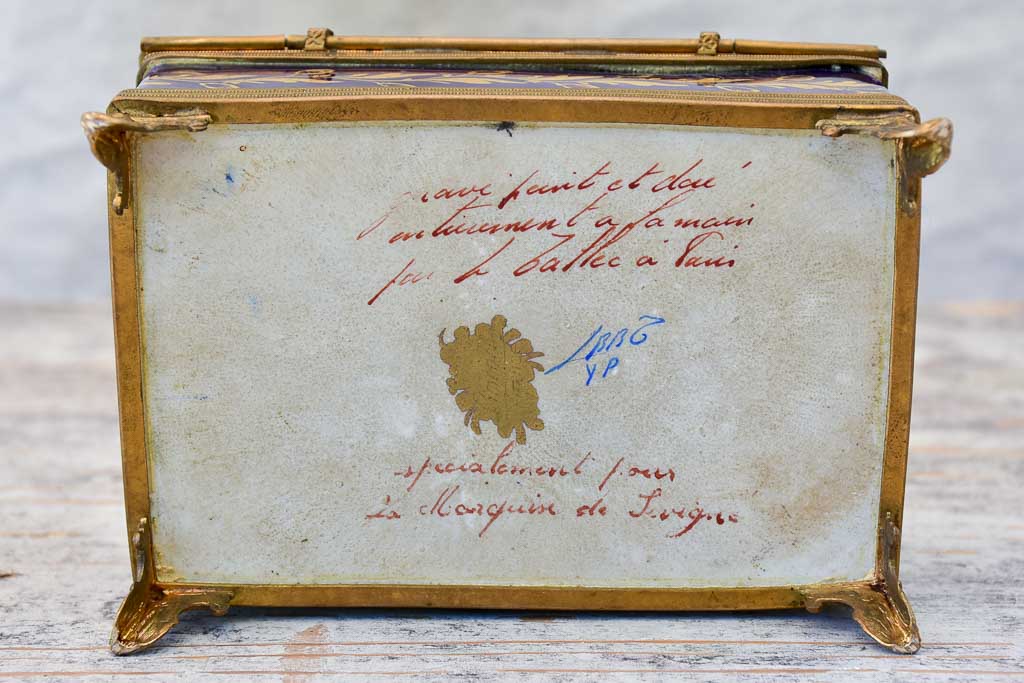 gravé peint et doré
entièrement a la main
par Le Tallec à Paris
LBBT
YP
spécialement pour
La Marquise de Sévigné